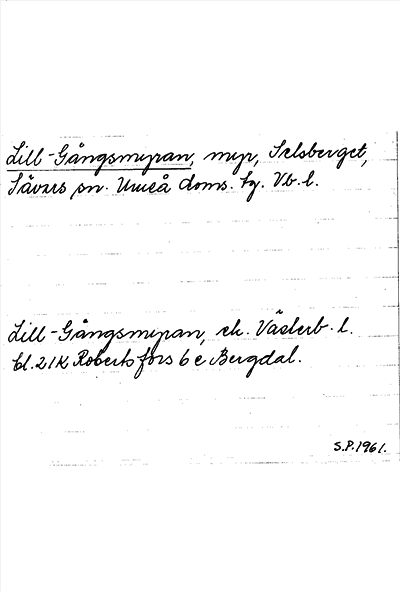 Lill-Gångsmyran, myr, Selsberget,
Sävars sn. Umeå doms. tg. Vb. l.
Lill-Gångsmyran, ek. Västerb. l.
bl. 21K Robertsfors 6 e Bergdal.
S.P. 1961.